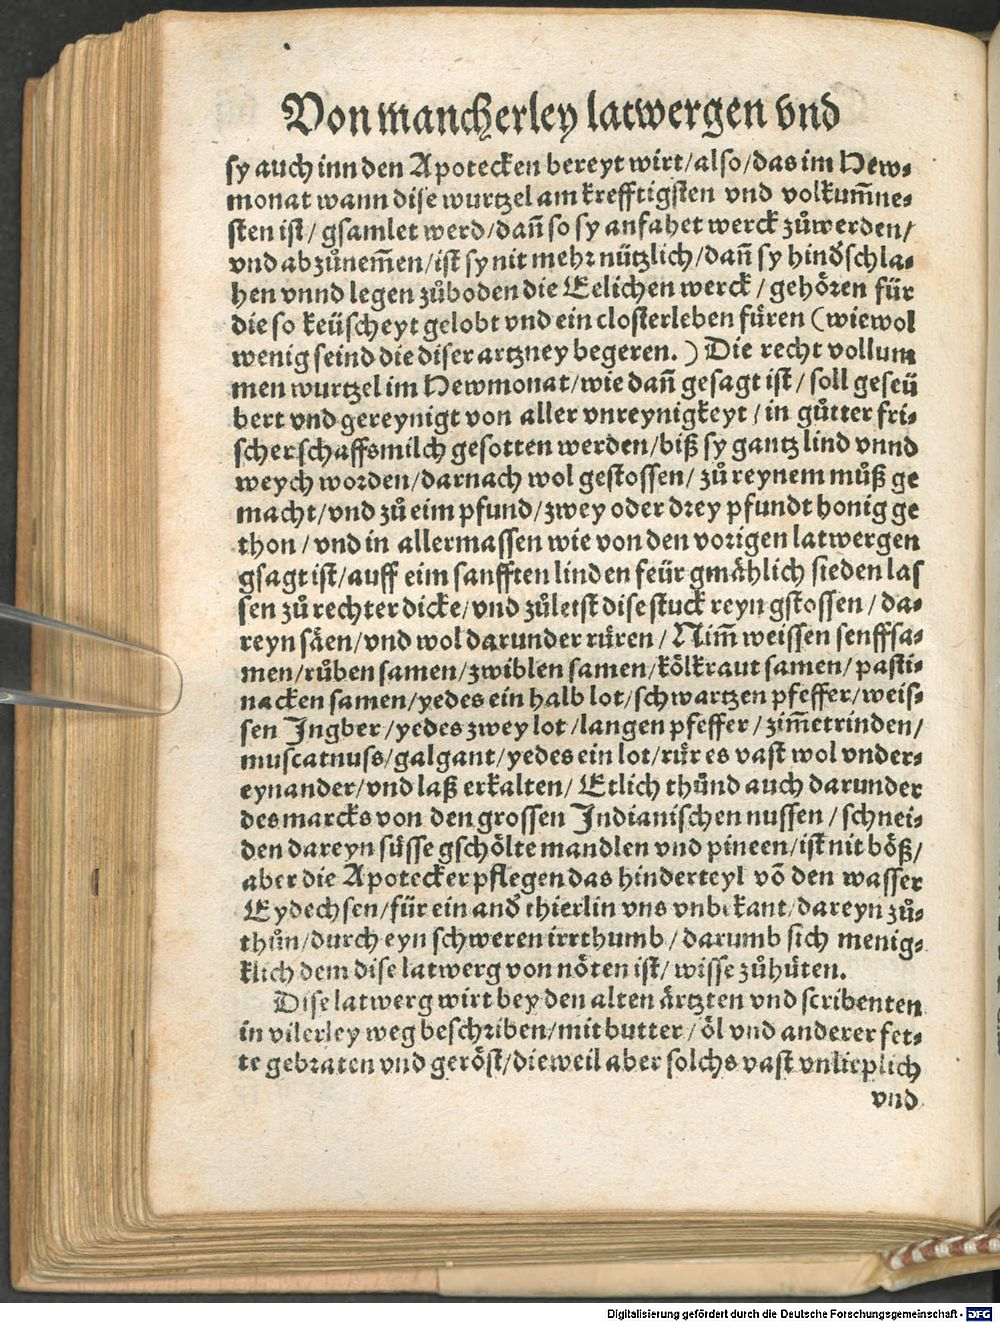 Von mancherley latwergen vnd
sy auch inn den Apotecken bereyt wirt/also/das im Hew⸗
monat wann dise wurtzel am krefftigsten vnd volkum̃ne⸗
sten ist/ gsamlet werd/dañ so sy anfahet werck zůwerden/
vnd abzůnem̃en/ist sy nit mehr nützlich/dañ sy hinđschla⸗
hen vnnd legen zůboden die Eelichen werck / gehören für
die so keüscheyt gelobt vnd ein closterleben füren (wiewol
wenig seind die diser artzney begeren. ) Die recht vollum
men wurtzel im Hewmonat/wie dañ gesagt ist / soll geseü
bert vnd gereynigt von aller vnreynigkeyt / in gůtter fri⸗
scher schaffsmilch gesotten werden/biß sy gantz lind vnnd
weych worden/darnach wol gestossen/ zů reynem můß ge
macht/vnd zů eim pfund/zwey oder drey pfundt honig ge
thon / vnd in allermassen wie von den vorigen latwergen
gsagt ist/auff eim sanfften linden feür gmählich sieden las
sen zů rechter dicke/vnd zůletst dise stuck reyn gstossen / da⸗
reyn säen/vnd wol darunder rüren / Nim̃ weissen senffsa⸗
men/růben samen/zwiblen samen/kölkraut samen/ pasti⸗
nacken samen/yedes ein halb lot/schwartzen pfeffer/weis⸗
sen Jngber/yedes zwey lot /langen pfeffer / zim̃etrinden/
muscatnuss/galgant/yedes ein lot/rür es vast wol vnder⸗
eynander/vnd laß erkalten/ Etlich thünd auch darunder
des marcks von den grossen Jndianischen nussen / schnei⸗
den dareyn süsse gschölte mandlen vnd pineen/ist nit böß/
aber die Apotecker pflegen das hinderteyl võ den wasser
Eydechsen/für ein anđ thierlin vns vnbekant/dareyn zů⸗
thůn/durch eyn schweren irrthumb / darumb sich menig⸗
klich dem dise latwerg von nöten ist/ wisse zůhüten.
Dise latwerg wirt bey den alten ärtzten vnd scribenten
in vilerley weg beschriben/mit butter / öl vnd anderer fet⸗
te gebraten vnd geröst/dieweil aber solchs vast vnlieplich
vnd
Digitalisierung gefördert durch die Deutsche Forschungsgemeinschaft - DFG